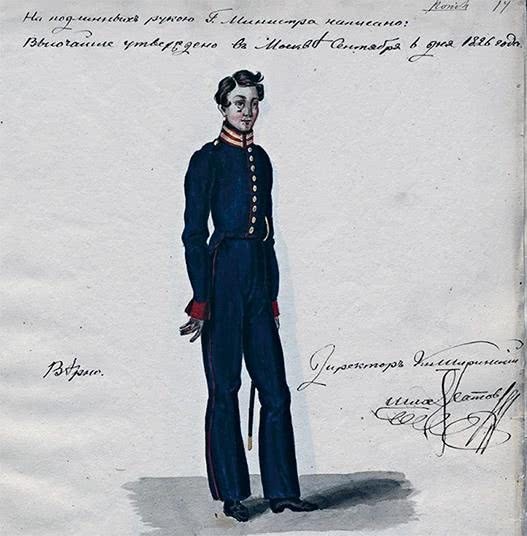 Копія 14
На подлинныхъ рукою Г. Министра написано:
Высочайше утверждено въ Москвѣ Сентября 6 дня 1826 года.
Вѣрно.
Директоръ Кн. Ширинскій
Шихматовъ